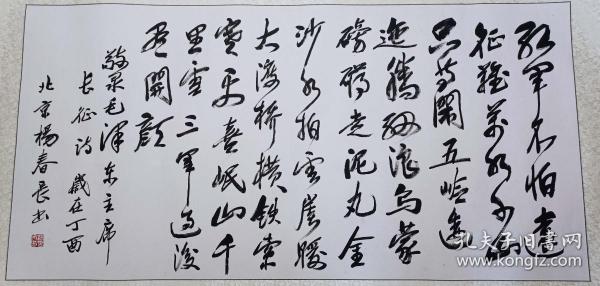 红军不怕远
征難萬水千山
只等閑五嶺逶
迤騰細浪烏蒙
磅礴走泥丸金
沙水拍雲崖暖
大渡橋橫铁索
寒更喜岷山千
里雪三軍过後
尽開顏
敬录毛泽东主席
长征诗 歲在丁酉
北京楊春長书
孔夫子旧书网
www.kongfz.com